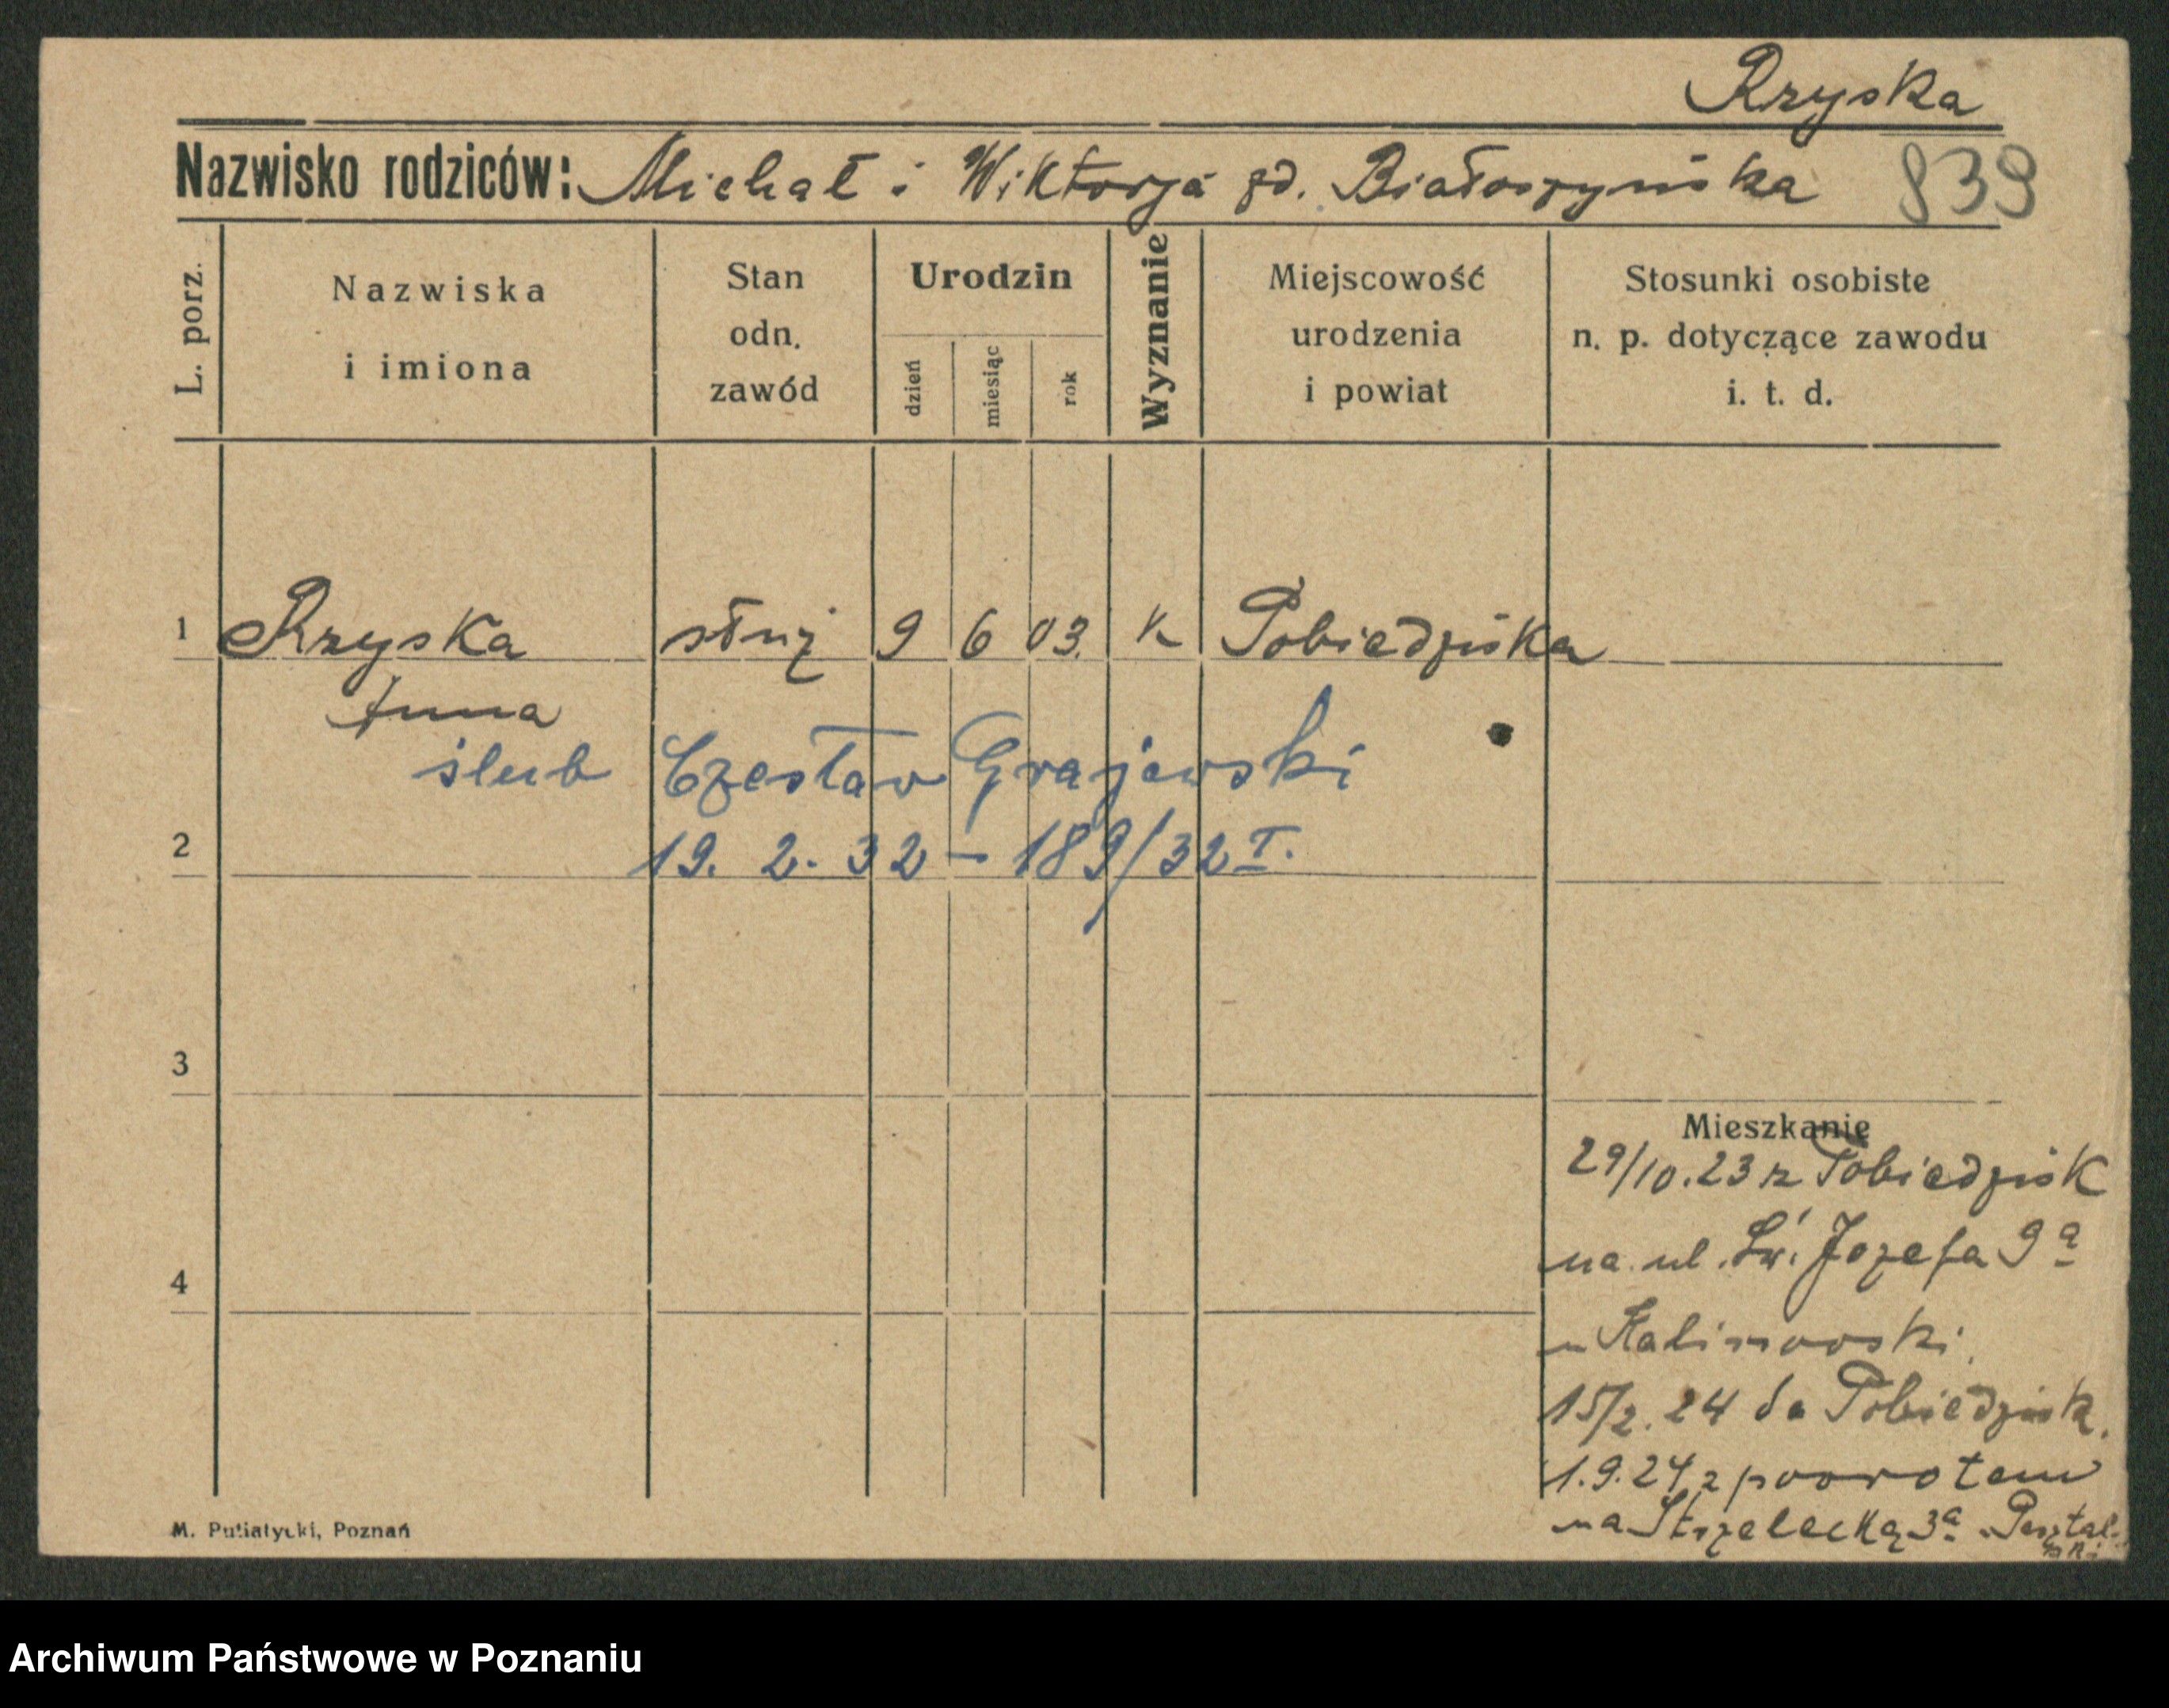 Rzyska
Nazwisko rodziców: Michał i Wiktorja zd. Białoszyńska 839
L. porz.
Nazwiska
i imiona
Stan
odn.
zawód
Urodzin
dzień
miesiąc
rok
Wyznanie
Miejscowość
urodzenia
i powiat
Stosunki osobiste
n. p. dotyczące zawodu
i. t. d.
1 Rzyska służ 9 6 03. K Pobiedziska
Anna
ślub Czesław Grajewski
2 19. 2. 32 – 189/32 I.
3
Mieszkanie
29/10.23 z Pobiedzisk
na ul. Św. Józefa 9a
4
u Kalinowski.
15/2. 24 do Pobiedzisk.
1.9.24 z powrotem
na Strzelecką 3a
M. Putiatycki, Poznań
Archiwum Państwowe w Poznaniu